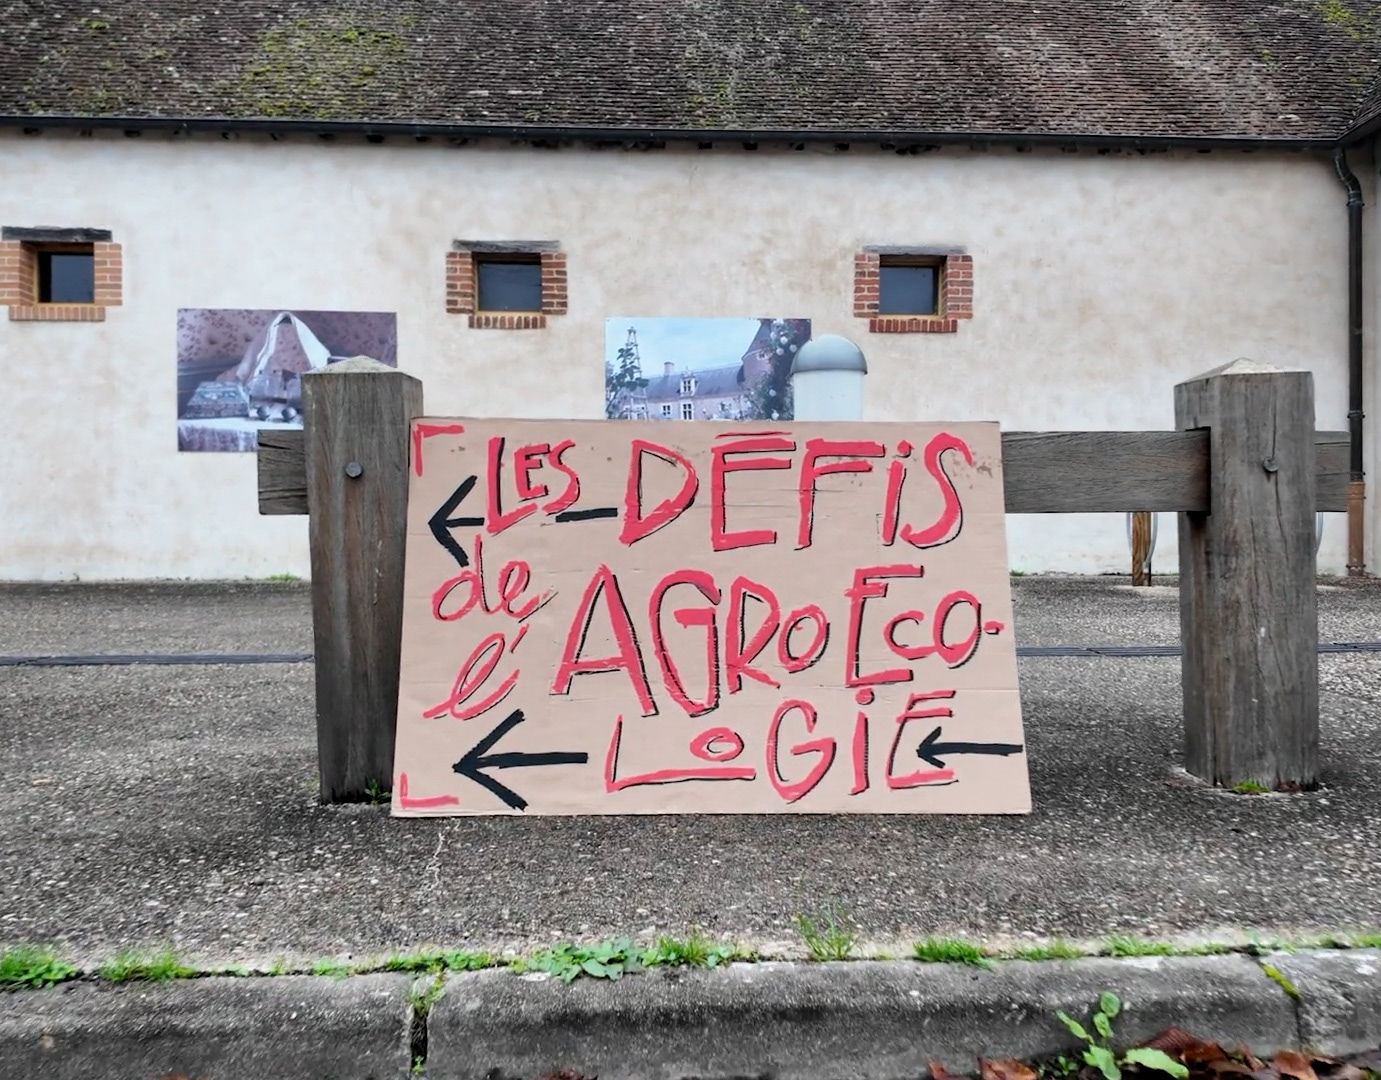 LES DÉFiS
de
l'AGROECO-
LOGiE